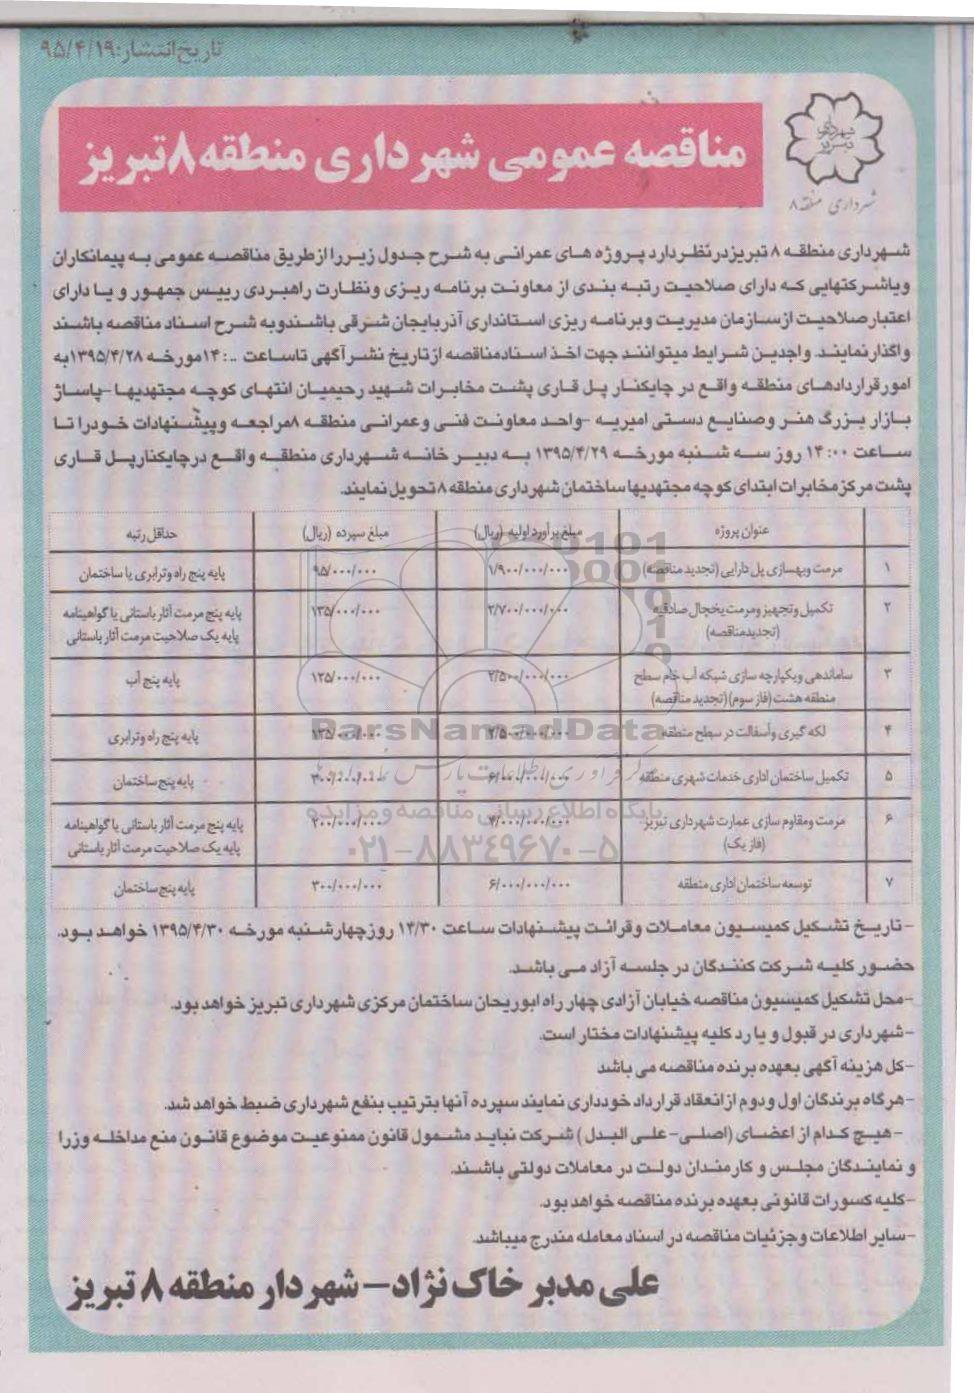 تاریخ انتشار: ۹۵/۴/۱۹
شهرداری تبریز
شهرداری منطقه ۸
مناقصه عمومی شهرداری منطقه ۸ تبریز
شهرداری منطقه ۸ تبریز در نظر دارد پروژه های عمرانی به شرح جدول زیر را از طریق مناقصه عمومی به پیمانکاران
و یا شرکتهایی که دارای صلاحیت رتبه بندی از معاونت برنامه ریزی و نظارت راهبردی رییس جمهور و یا دارای
اعتبار صلاحیت از سازمان مدیریت و برنامه ریزی استانداری آذربایجان شرقی باشند و به شرح اسناد مناقصه باشند
واگذار نمایند. واجدین شرایط میتوانند جهت اخذ اسناد مناقصه از تاریخ نشر آگهی تا ساعت ۱۴:۰۰ مورخه ۱۳۹۵/۴/۲۸ به
امور قراردادهای منطقه واقع در چایکنار پل قاری پشت مخابرات شهید رحیمیان انتهای کوچه مجتهدیها - پاساژ
بازار بزرگ هنر و صنایع دستی امیریه - واحد معاونت فنی و عمرانی منطقه ۸ مراجعه و پیشنهادات خود را تا
ساعت ۱۴:۰۰ روز سه شنبه مورخه ۱۳۹۵/۴/۲۹ به دبیر خانه شهرداری منطقه واقع در چایکنار پل قاری
پشت مرکز مخابرات ابتدای کوچه مجتهدیها ساختمان شهرداری منطقه ۸ تحویل نمایند.
عنوان پروژه مبلغ برآورد اولیه (ریال) مبلغ سپرده (ریال) حداقل رتبه
۱ مرمت و بهسازی پل دارایی (تجدید مناقصه) ۱/۹۰۰/۰۰۰/۰۰۰ ۹۵/۰۰۰/۰۰۰ پایه پنج راه و ترابری یا ساختمان
۲ تکمیل و تجهیز و مرمت یخچال صادقیه ۲/۷۰۰/۰۰۰/۰۰۰ ۱۳۵/۰۰۰/۰۰۰ پایه پنج مرمت آثار باستانی یا گواهینامه
(تجدید مناقصه) پایه یک صلاحیت مرمت آثار باستانی
۳ ساماندهی و یکپارچه سازی شبکه آب خام سطح ۲/۵۰۰/۰۰۰/۰۰۰ ۱۲۵/۰۰۰/۰۰۰ پایه پنج آب
منطقه هشت (فاز سوم) (تجدید مناقصه)
۴ لکه گیری و آسفالت در سطح منطقه ۲/۵۰۰/۰۰۰/۰۰۰ ۱۲۵/۰۰۰/۰۰۰ پایه پنج راه و ترابری
۵ تکمیل ساختمان اداری خدمات شهری منطقه ۶/۰۰۰/۰۰۰/۰۰۰ ۳۰۰/۰۰۰/۰۰۰ پایه پنج ساختمان
۶ مرمت و مقاوم سازی عمارت شهرداری تبریز ۴/۰۰۰/۰۰۰/۰۰۰ ۲۰۰/۰۰۰/۰۰۰ پایه پنج مرمت آثار باستانی یا گواهینامه
(فاز یک) پایه یک صلاحیت مرمت آثار باستانی
۷ توسعه ساختمان اداری منطقه ۶/۰۰۰/۰۰۰/۰۰۰ ۳۰۰/۰۰۰/۰۰۰ پایه پنج ساختمان
ParsNamadData
پایگاه اطلاع رسانی مناقصه و مزایده
۰۲۱-۸۸۳۴۹۶۷۰-۵
- تاریخ تشکیل کمیسیون معاملات و قرائت پیشنهادات ساعت ۱۴/۳۰ روز چهارشنبه مورخه ۱۳۹۵/۴/۳۰ خواهد بود.
حضور کلیه شرکت کنندگان در جلسه آزاد می باشد.
- محل تشکیل کمیسیون مناقصه خیابان آزادی چهار راه ابوریحان ساختمان مرکزی شهرداری تبریز خواهد بود.
- شهرداری در قبول و یا رد کلیه پیشنهادات مختار است.
- کل هزینه آگهی بعهده برنده مناقصه می باشد
- هر گاه برندگان اول و دوم از انعقاد قرارداد خودداری نمایند سپرده آنها بترتیب بنفع شهرداری ضبط خواهد شد.
- هیچ کدام از اعضای (اصلی - علی البدل) شرکت نباید مشمول قانون ممنوعیت موضوع قانون منع مداخله وزرا
و نمایندگان مجلس و کارمندان دولت در معاملات دولتی باشند.
- کلیه کسورات قانونی بعهده برنده مناقصه خواهد بود.
- سایر اطلاعات و جزئیات مناقصه در اسناد معامله مندرج میباشد.
علی مدبر خاک نژاد - شهردار منطقه ۸ تبریز